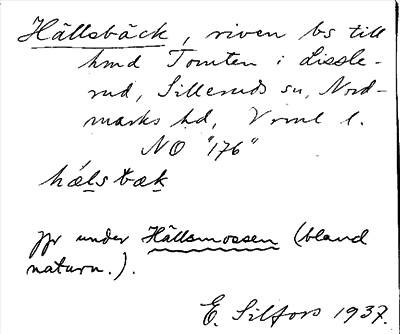 Hällsbäck, riven bs till
hmd Tomten i Lissle-
rud, Silleruds sn, Nord-
marks hd, Vrml l.
NO "176"
hǽls bæk
jfr under Hällsmossen (bland
naturn.).
E. Silfors 1937.